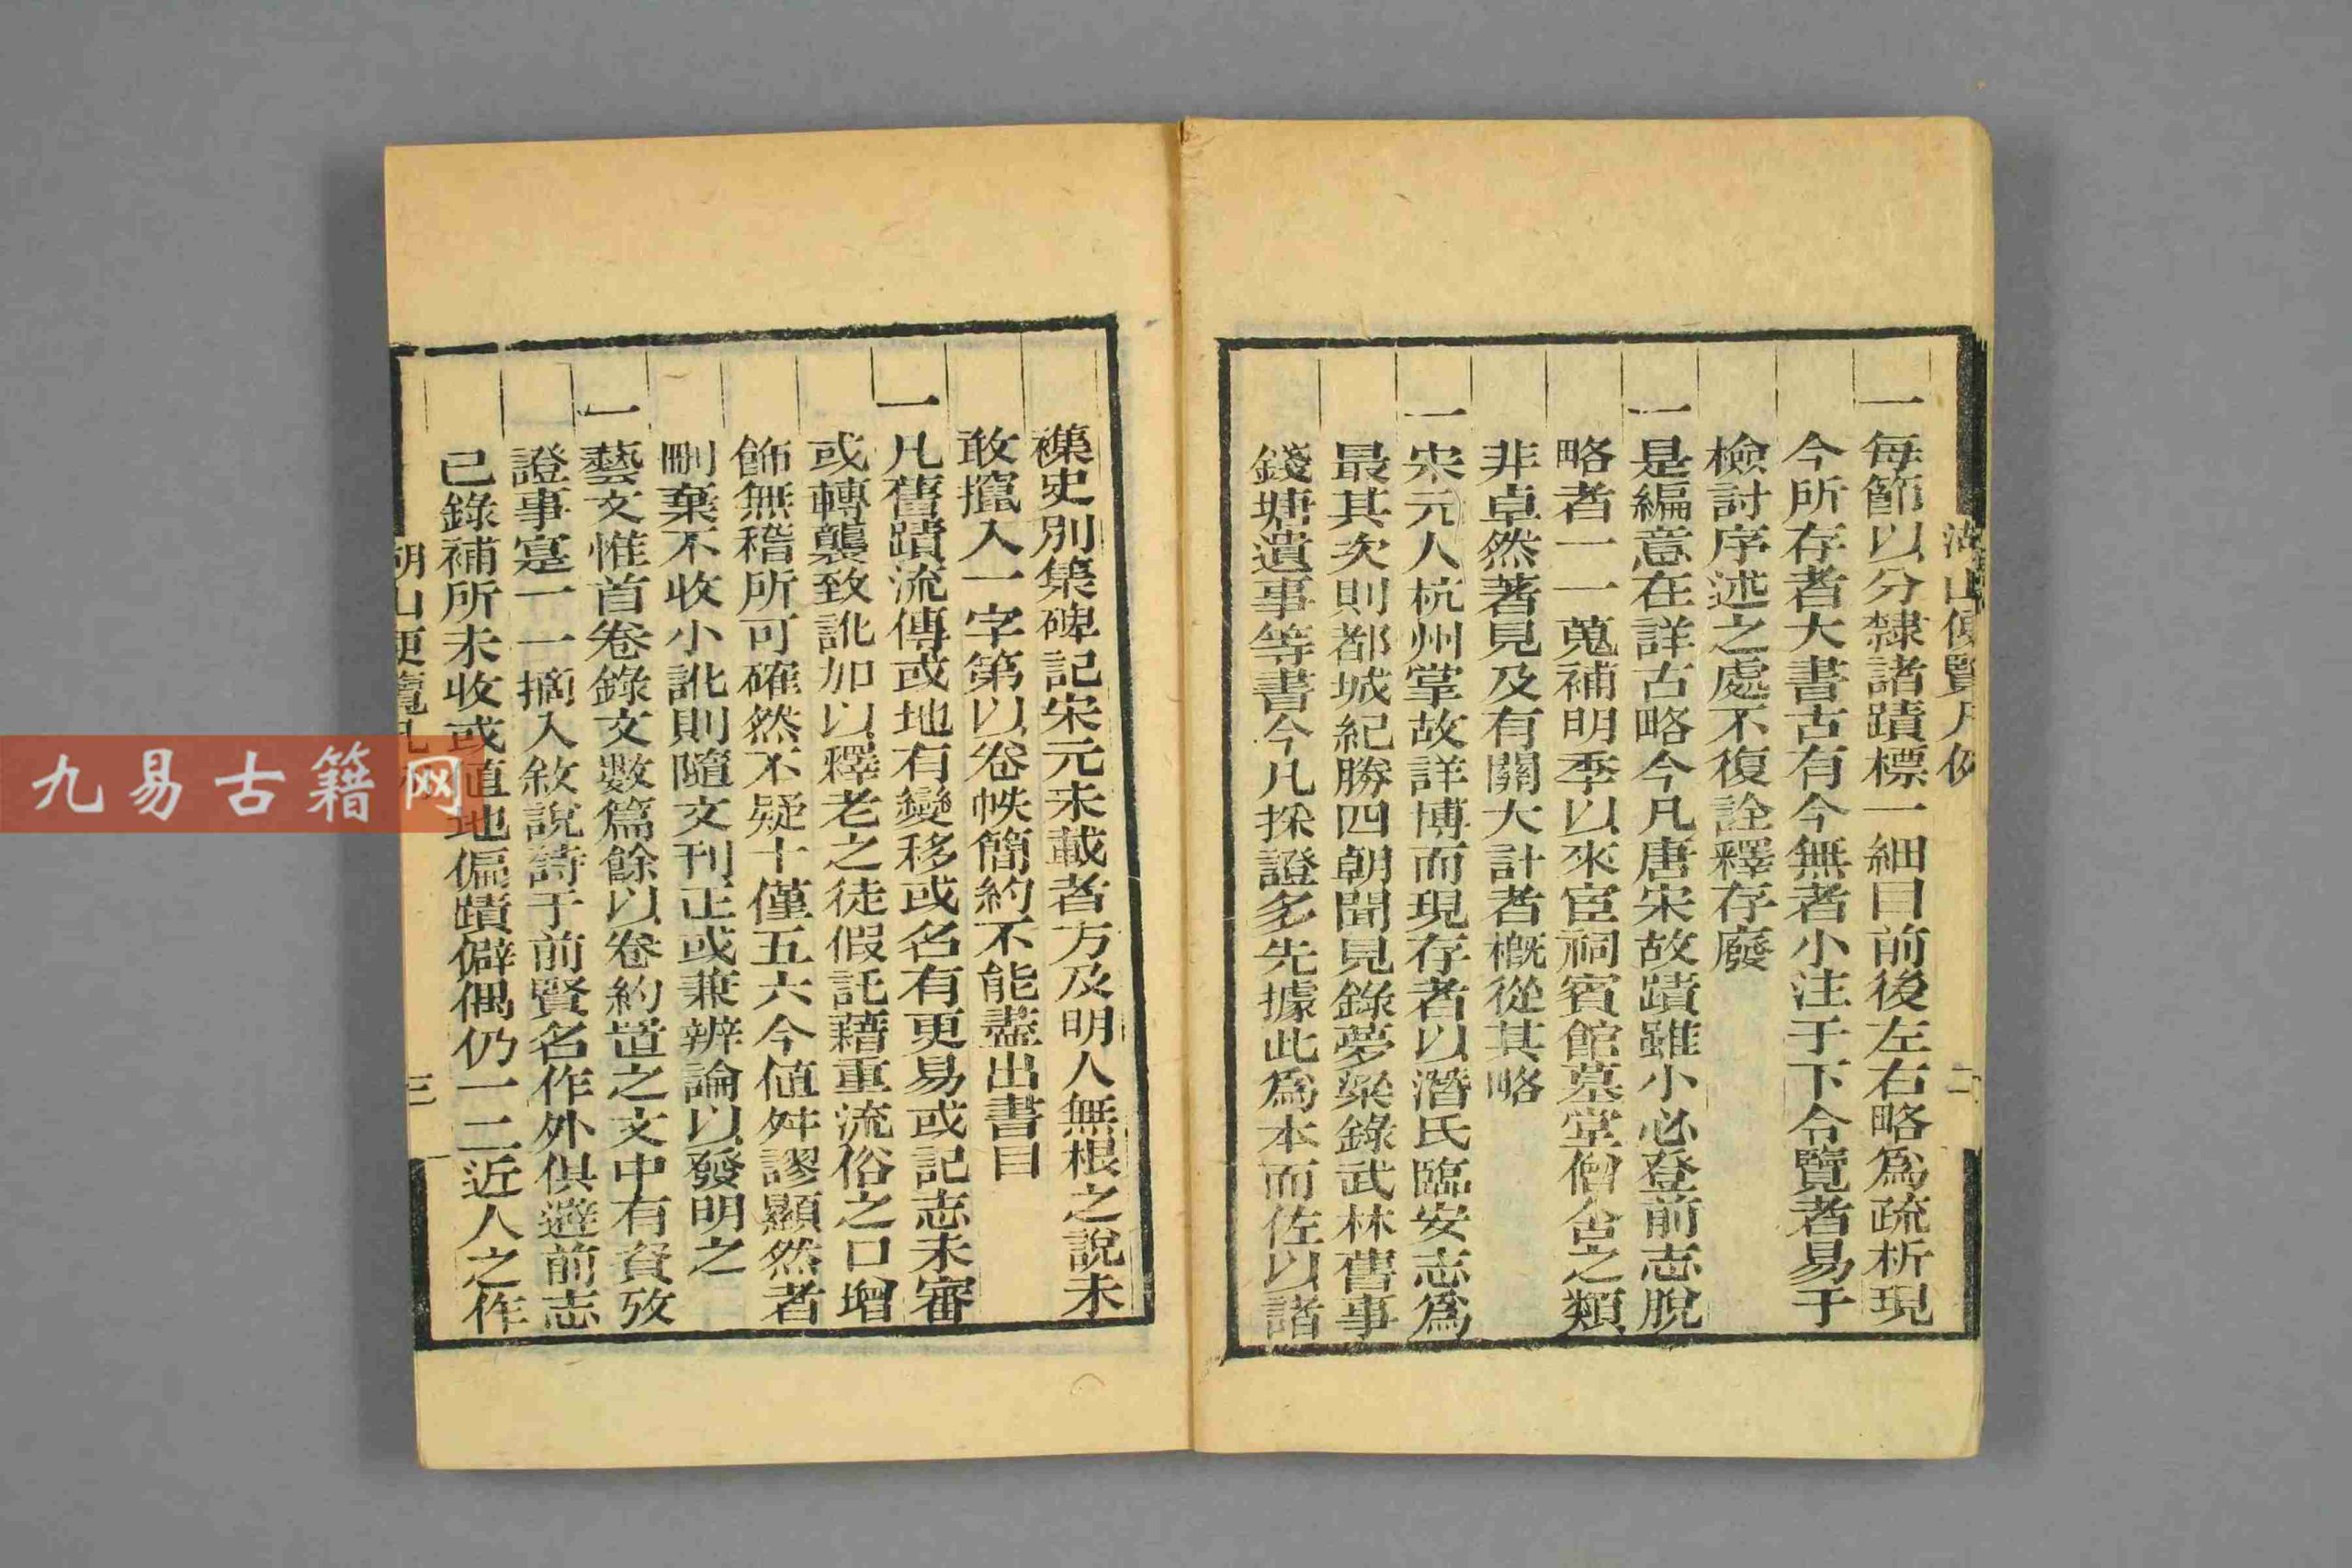 湖山便覽凡例
二
一每節以分隸諸蹟標一細目前後左右略爲疏析現
今所存者大書古有今無者小注于下令覽者易于
檢討序述之處不復詮釋存廢
一是編意在詳古略今凡唐宋故蹟雖小必登前志脫
略者一一蒐補明季以來宦祠賓館墓堂僧舍之類
非卓然著見及有關大計者槪從其略
一宋元人杭州掌故詳博而現存者以潛氏臨安志爲
最其次則都城紀勝四朝聞見錄夢粱錄武林舊事
錢塘遺事等書今凡採證多先據此爲本而佐以諸
襍史別集碑記宋元未載者方及明人無根之說未
敢攛入一字第以卷帙簡約不能盡出書目
一凡舊蹟流傳或地有變移或名有更易或記志未審
或轉襲致訛加以釋老之徒假託藉重流俗之口增
飾無稽所可確然不疑十僅五六今値舛謬顯然者
刪棄不收小訛則隨文刊正或兼辨論以發明之
一藝文惟首卷錄文數篇餘以卷約置之文中有資攷
證事寔一一摘入敘說詩于前賢名作外俱避前志
已錄補所未收或値地偏蹟僻偶仍一二近人之作
湖山便覽凡例
三
九易古籍网